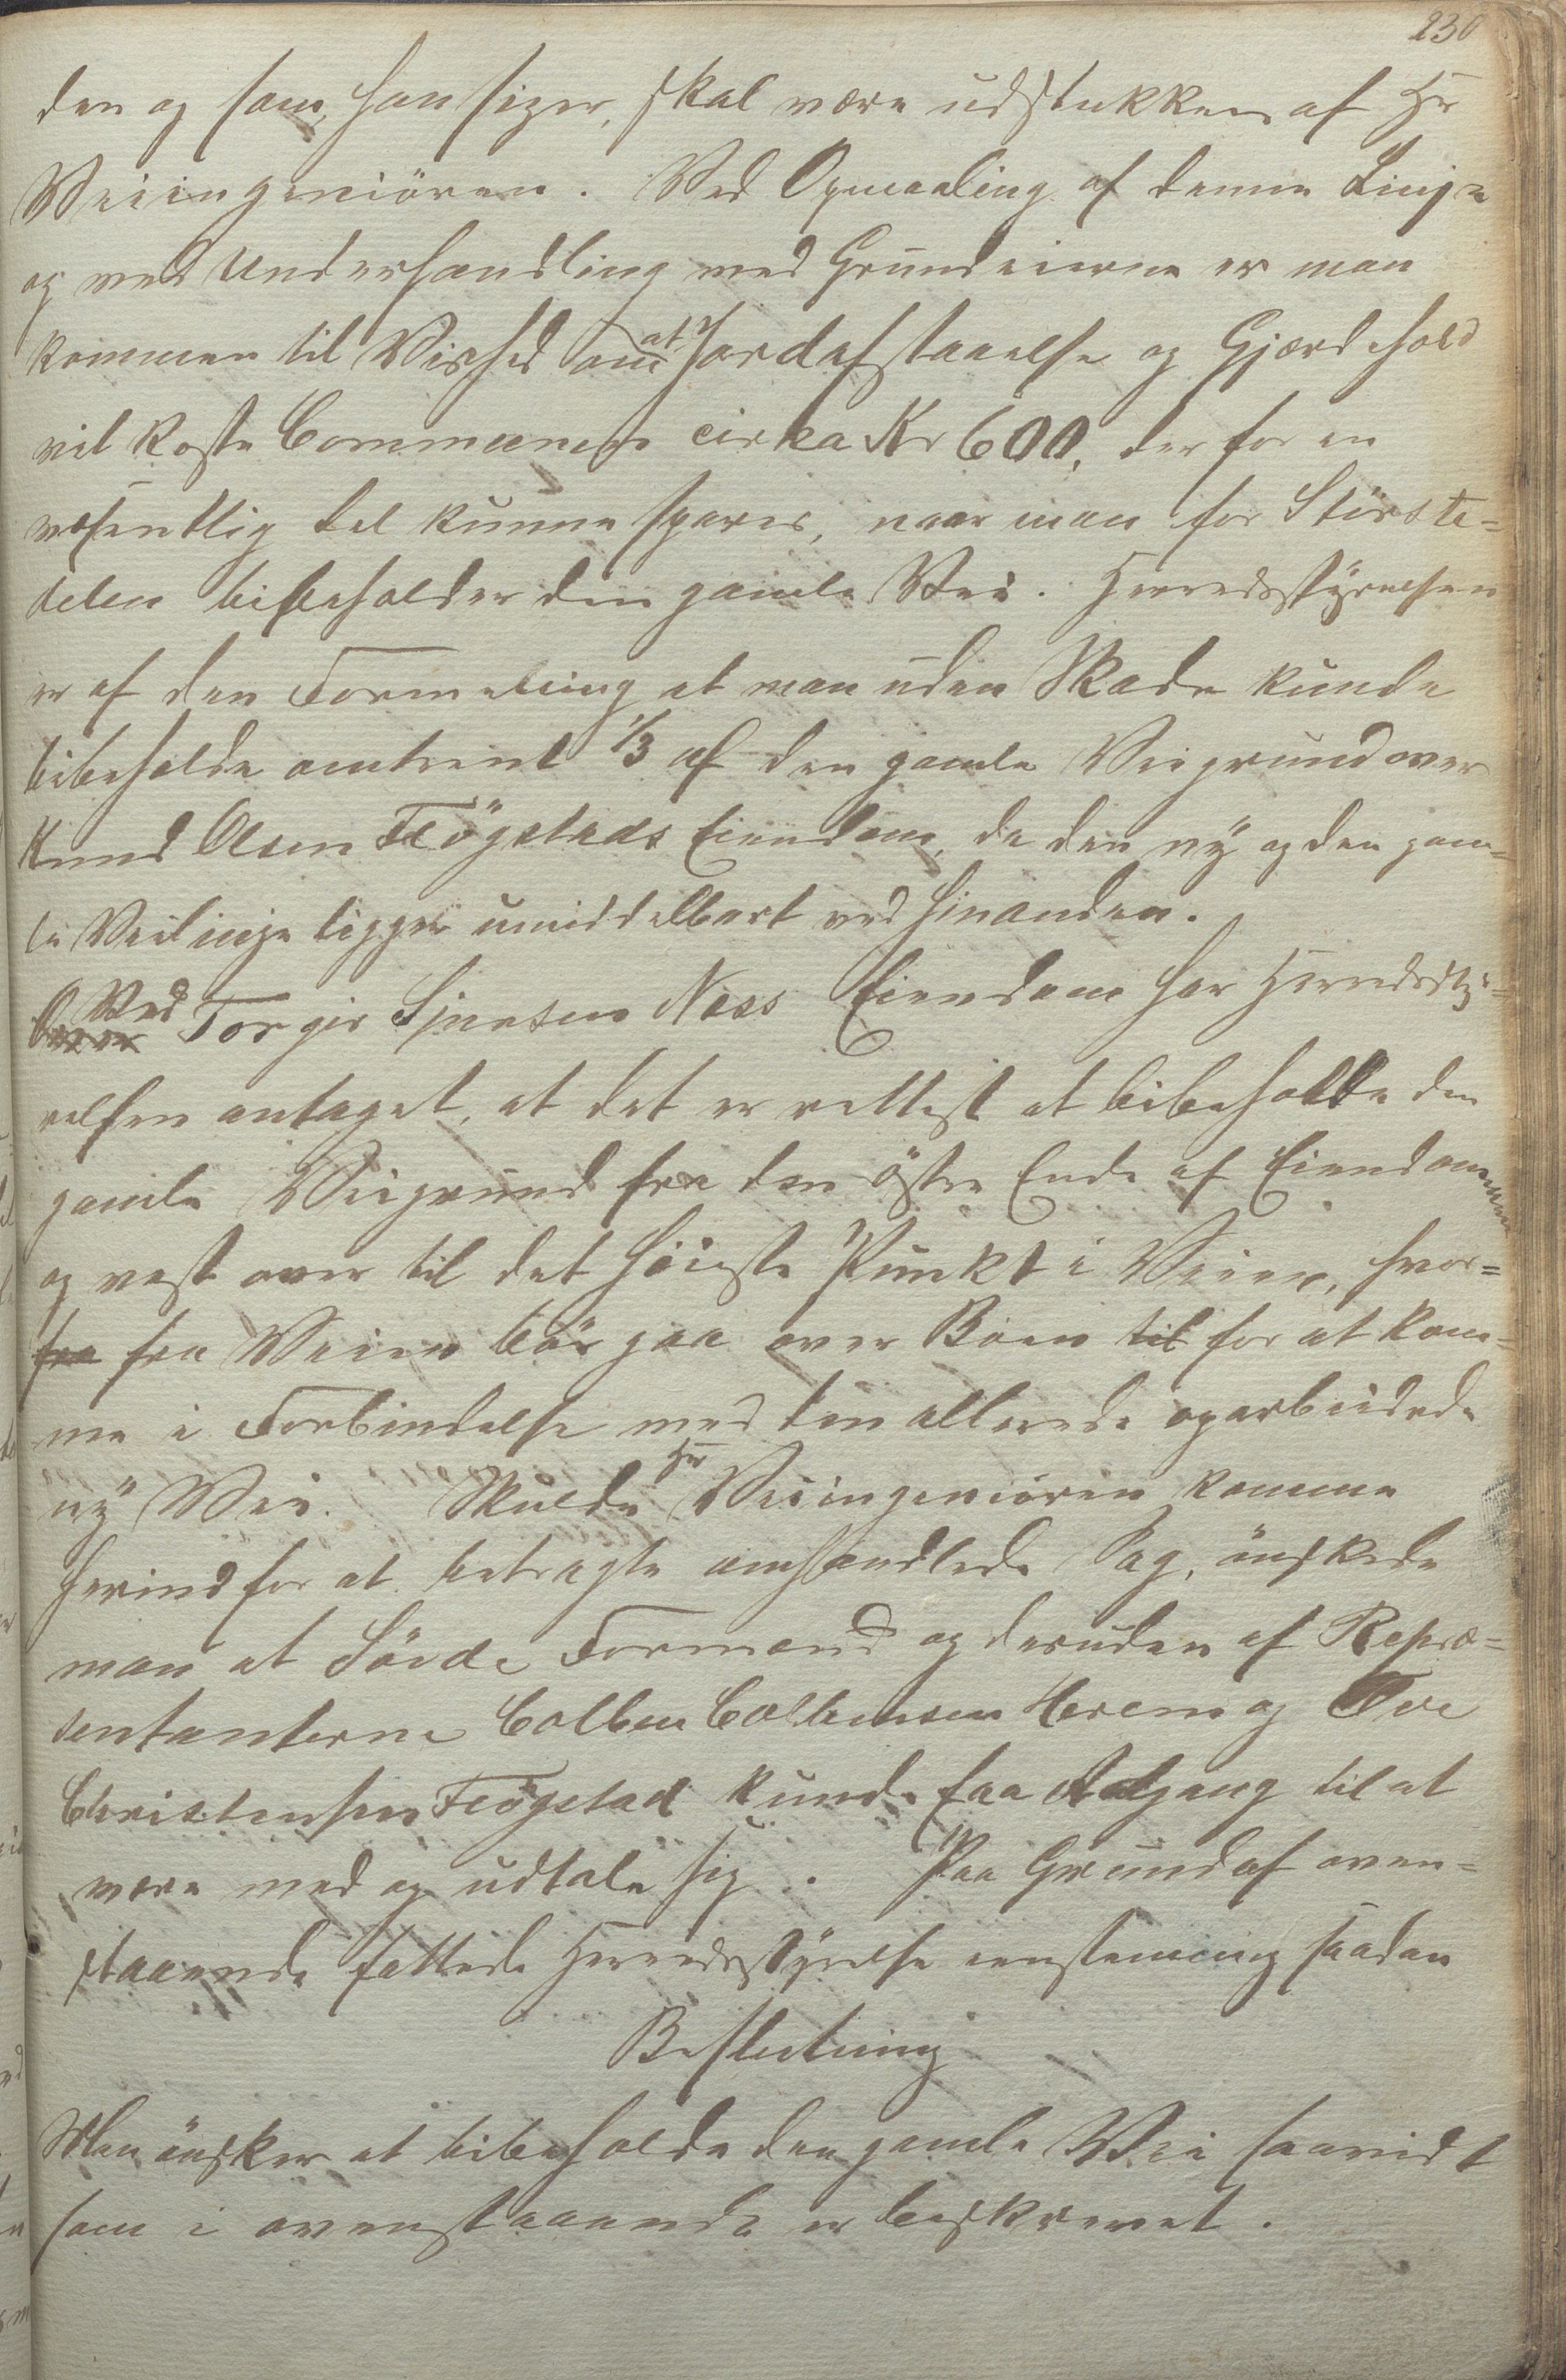 230
den og som, han siger, skal være udstukken af Hr
Veiingeniören. Ved Opmaaling af denne Linje
og ved Underhandling med Grundeierne er man
kommen til Vished om at Jordafstaaelse og Gjærdehold
vil koste Communen cirka Kr 600, der for en
væsentlig del kunne spares, naar man for Störste-
delen bibeholder den gamle Vei. Herredsstyrelsen
er af den Formening at man uden Skade kunde
bibeholde omtrent 1/3 af den gamle Veigrund over
Knud Olsen Flögstads Eiendom, da den ny og den gam-
le Veilinje ligger umiddelbart ved hinanden.
Over Ved Torger Sjursen Ness Eiendom har Herredssty-
relsen antaget, at det er rettest at bibeholde den
gamle Veigrund fra den östre Ende af Eiendommen
og vest over til det höieste Punkt i Veien, hvor-
fra fra Veien bör gaa over Böen til for at kom-
me i Forbindelse med den allerede oparbeidede
ny Vei. Skulde Hr Veiingeniören komme
herind for at betragte omhandlede Sag, önskede
man at Förde Formand og desuden af Repræ-
sentanterne Colben Colbensen Herem og Ove
Christensen Flögstad kunde faa Adgang til at
være med og udtale sig. Paa Grund af oven-
staaende fattede Herredsstyrelse enstemmig saadan
Beslutning
Man önsker at bibeholde den gamle Vei saavidt
som i ovenstaaende er beskrevet.